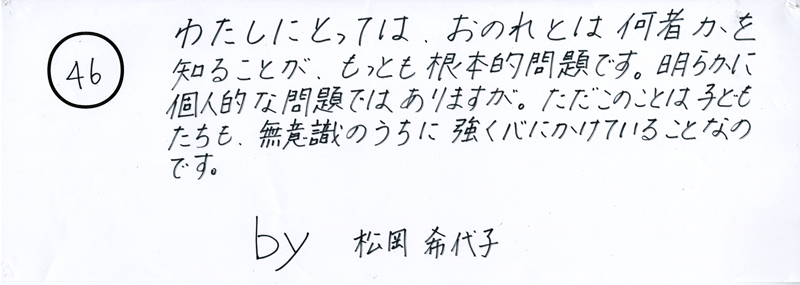 46
わたしにとっては、おのれとは何者かを
知ることが、もっとも根本的問題です。明らかに
個人的な問題ではありますが。ただこのことは子ども
たちも、無意識のうちに強く心にかけていることなの
です。
by 松岡 希代子